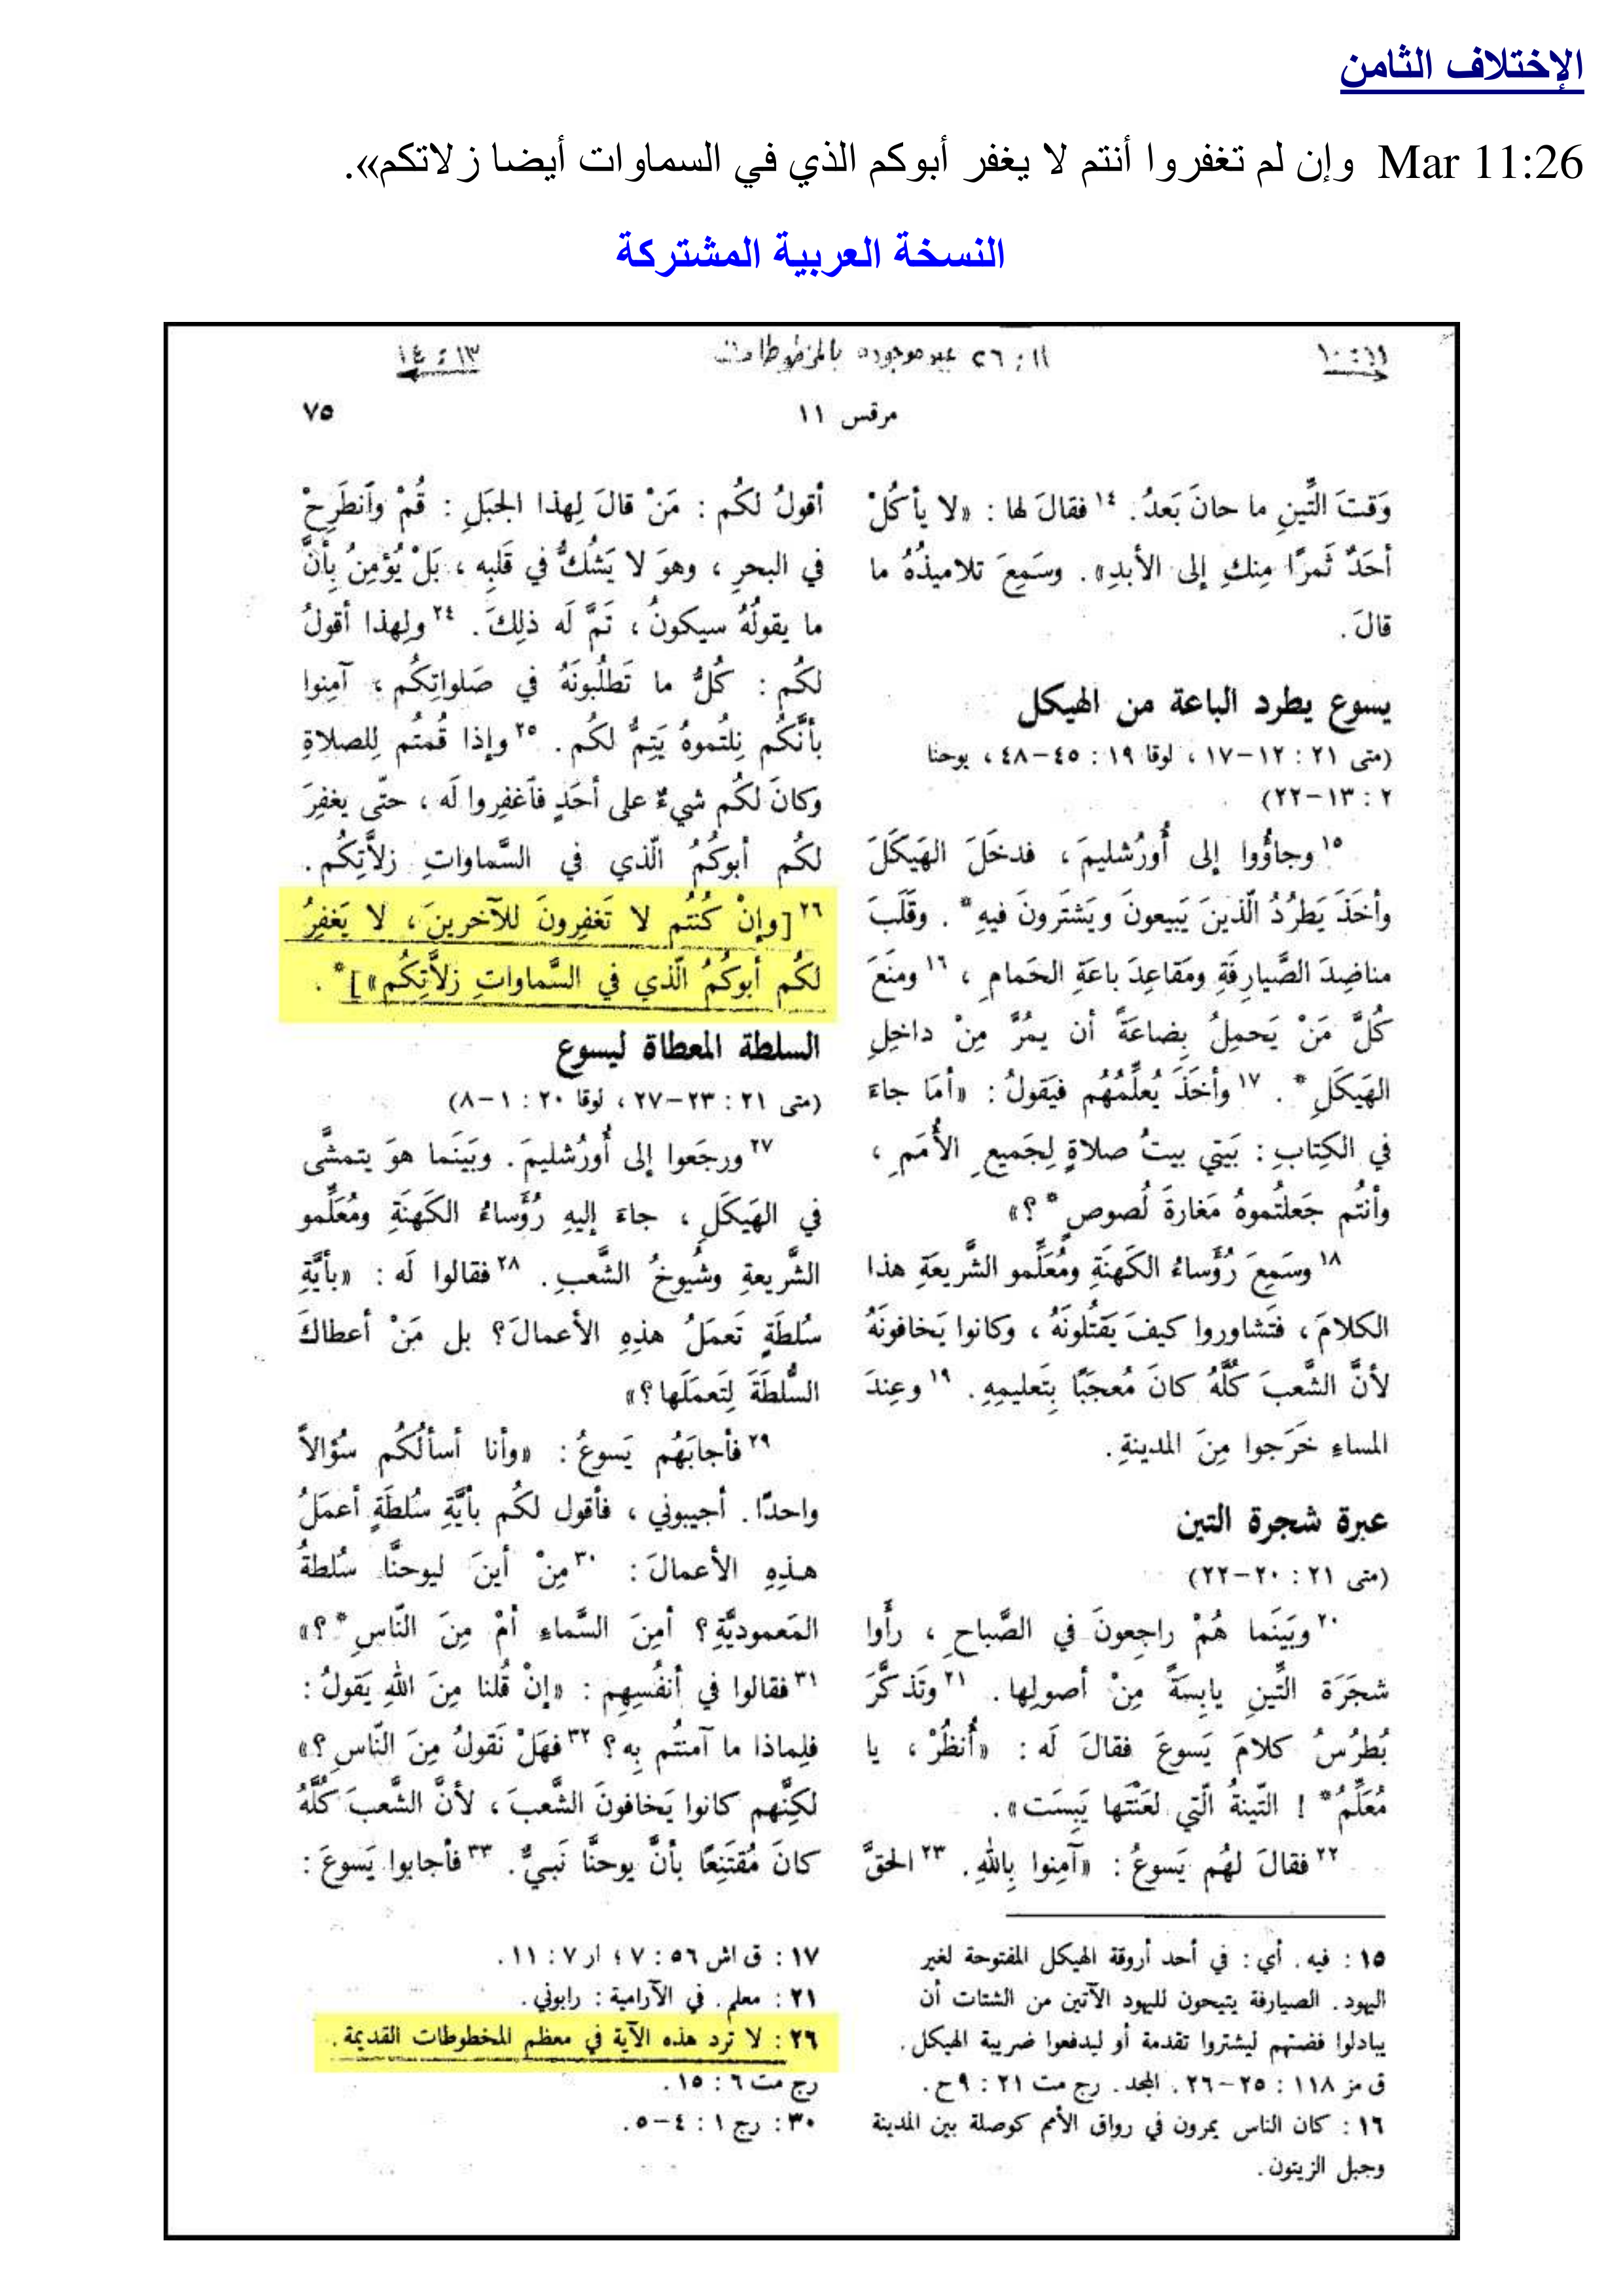 الإختلاف الثامن
Mar 11:26 وإن لم تغفروا أنتم لا يغفر أبوكم الذي في السماوات أيضا زلاتكم».
النسخة العربية المشتركة
١١ : ١٠
١١ : ٢٦ غير موجوده بالمخطوطات
١٣ : ١٤
مرقس ١١
٧٥
وَقتَ التِّينِ ما حانَ بَعدُ. ١٤ فقالَ لها : «لا يأكُلْ
أحَدٌ ثَمرًا مِنكِ إلى الأبدِ». وسَمِعَ تلاميذُهُ ما
قالَ.
يسوع يطرد الباعة من الهيكل
(متى ٢١ : ١٢-١٧ ، لوقا ١٩ : ٤٥-٤٨ ، يوحنا
٢ : ١٣-٢٢)
١٥ وجاؤُوا إلى أُورُشليمَ، فدخَلَ الهَيكَلَ
وأخَذَ يَطرُدُ الّذينَ يَبيعونَ ويَشتَرونَ فيهِ* . وقَلَبَ
مناضِدَ الصَّيارِفَةِ ومَقاعِدَ باعَةِ الحَمامِ ، ١٦ ومنَعَ
كُلَّ مَنْ يَحمِلُ بِضاعَةً أن يمُرَّ مِنْ داخِلِ
الهَيكَلِ* . ١٧ وأخَذَ يُعلِّمُهُم فيَقولُ : «أمَا جاءَ
في الكِتابِ : بَيتي بيتُ صلاةٍ لِجَميعِ الأُمَمِ ،
وأنتُم جَعلتُموهُ مَغارَةَ لُصوصٍ* ؟»
١٨ وسَمِعَ رُؤَساءُ الكَهنَةِ ومُعَلِّمو الشَّريعَةِ هذا
الكلامَ، فتَشاوروا كيفَ يَقتُلونَهُ ، وكانوا يَخافونَهُ
لأنَّ الشَّعبَ كُلَّهُ كانَ مُعجَبًا بِتَعليمِهِ. ١٩ وعِندَ
المساءِ خَرَجوا مِنَ المدينةِ.
عبرة شجرة التين
(متى ٢١ : ٢٠-٢٢)
٢٠ وبَينَما هُمْ راجِعونَ في الصَّباحِ ، رأَوا
شجَرَة التِّينِ يابِسَةً مِنْ أصولِها. ٢١ وتَذكَّرَ
بُطرُسُ كلامَ يَسوعَ فقالَ لَه : «أُنظُرْ ، يا
مُعَلِّمُ* ! التّينةُ الّتي لعَنْتَها يَبِسَت».
٢٢ فقالَ لهُم يَسوعُ : «آمِنوا بِاللهِ. ٢٣ الحقَّ
أقولُ لكُم : مَنْ قالَ لِهذا الجبَلِ : قُمْ وَٱنطَرِحْ
في البحرِ ، وهوَ لا يَشُكُّ في قَلبِه ، بَلْ يُؤمِنُ بِأنَّ
ما يقولُهُ سيكونُ ، تَمَّ لَه ذلِكَ. ٢٤ ولِهذا أقولُ
لكُم : كُلُّ ما تَطلُبونَهُ في صَلواتِكُم ، آمِنوا
بأنَّكُم نِلتُموهُ يَتِمُّ لكُم. ٢٥ وإذا قُمتُم لِلصلاةِ
وكانَ لكُم شيءٌ على أحَدٍ فٱغفِروا لَه ، حتّى يغفِرَ
لكُم أبوكُمُ الّذي في السَّماواتِ زلاَّتِكُم.
٢٦ [وإنْ كُنتُم لا تَغفِرونَ للآخرينَ ، لا يَغفِرُ
لكُم أبوكُمُ الّذي في السَّماواتِ زلاَّتِكُم»]* .
السلطة المعطاة ليسوع
(متى ٢١ : ٢٣-٢٧ ، لوقا ٢٠ : ١-٨)
٢٧ ورجَعوا إلى أُورُشليمَ. وبَينَما هوَ يتمشَّى
في الهَيكَلِ ، جاءَ إليهِ رُؤَساءُ الكَهنَةِ ومُعَلِّمو
الشَّريعةِ وشُيوخُ الشَّعبِ. ٢٨ فقالوا لَه : «بأيَّةِ
سُلطَةٍ تَعمَلُ هذِهِ الأعمالَ؟ بل مَنْ أعطاكَ
السُّلطَةَ لِتَعمَلَها؟»
٢٩ فأجابَهُم يَسوعُ : «وأنا أسألُكُم سُؤالاً
واحدًا. أجيبوني ، فأقول لكُم بأيَّةِ سُلطَةٍ أعمَلُ
هـذِهِ الأعمالَ : ٣٠ مِنْ أينَ ليوحنَّا سُلطةُ
المَعموديَّةِ؟ أمِنَ السَّماءِ أمْ مِنَ النّاسِ* ؟»
٣١ فقالوا في أنفُسِهِم : «إنْ قُلنا مِنَ اللهِ يَقولُ :
فلِماذا ما آمنتُم بِه؟ ٣٢ فهَلْ نَقولُ مِنَ النّاسِ؟»
لكِنَّهم كانوا يَخافونَ الشَّعبَ ، لأنَّ الشَّعبَ كُلَّهُ
كانَ مُقتَنِعًا بأنَّ يوحنَّا نَبيٌّ. ٣٣ فأجابوا يَسوعَ :
١٥ : فيه. أي : في أحد أروقة الهيكل المفتوحة لغير
اليهود. الصيارفة يتيحون لليهود الآتين من الشتات أن
يبادلوا فضتهم ليشتروا تقدمة أو ليدفعوا ضريبة الهيكل.
ق مز ١١٨ : ٢٥-٢٦. المجد. رج مت ٢١ : ٩ح.
١٦ : كان الناس يمرون في رواق الأمم كوصلة بين المدينة
وجبل الزيتون.
١٧ : ق اش ٥٦ : ٧ ؛ ار ٧ : ١١.
٢١ : معلم. في الآرامية : رابوني.
٢٦ : لا ترد هذه الآية في معظم المخطوطات القديمة.
رج مت ٦ : ١٥.
٣٠ : رج ١ : ٤-٥.